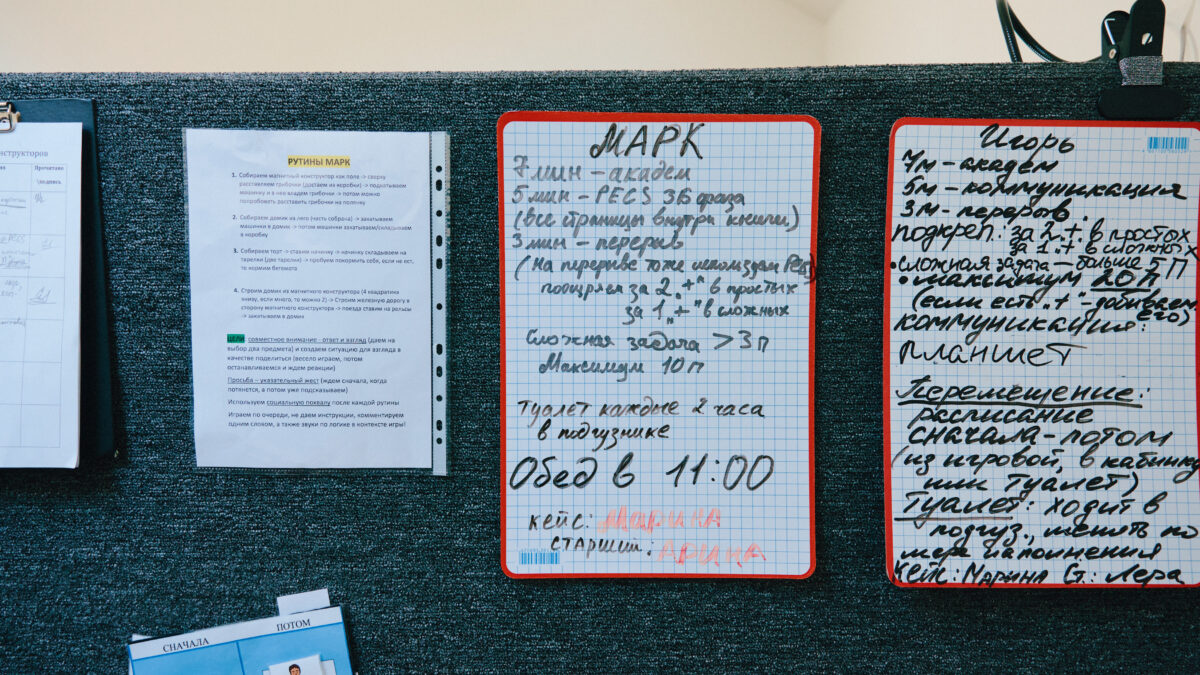 нструкторов
Прочитано
\подпись
РУТИНЫ МАРК
1. Собираем магнитный конструктор как поле -> сверху
расставляем грибочки (достаем из коробки) -> подкатываем
машинку и в нее кладем грибочки -> потом можно
попробовать расставить грибочки на полянку
2. Собираем домик из лего (часть собрана) -> закатываем
машинки в домик -> потом машинки закатываем/складываем
в коробку
3. Собираем торт -> ставим начинку -> начинку складываем на
тарелки (две тарелки) -> пробуем покормить себя, если не ест,
то кормим бегемота
4. Строим домик из магнитного конструктора (4 квадратика
внизу, если много, то можно 2) -> Строим железную дорогу в
сторону магнитного конструктора -> поезда ставим на рельсы
-> закатываем в домик
ЦЕЛИ: совместное внимание - ответ и взгляд (даем на
выбор два предмета) и создаем ситуацию для взгляда в
качестве поделиться (весело играем, потом
останавливаемся и ждем реакции)
Просьба – указательный жест (ждем сначала, когда
потянется, а потом уже подсказываем)
Используем социальную похвалу после каждой рутины
Играем по очереди, не даем инструкции, комментируем
одним словом, а также звуки по логике в контексте игры!
МАРК
7 мин - академ
5 мин - PECS 3Б фраза
(все страницы внутри книги)
3 мин - перерыв
(на перерыве тоже используем PECS)
поощряем за 2 „+" в простых
за 1 „+" в сложных
Сложная задача > 3 П
Максимум 10 П
Туалет каждые 2 часа
в подгузнике
Обед в 11:00
кейс: Марина
старший: Арина
Игорь
7м - академ
5м - коммуникация
3м - перерыв.
подкреп: за 2 „+" в простых
за 1 „+" в сложных
• сложная задача - больше 5 П
• максимум 20 П
(если есть „+" - добиваем
его)
коммуникация:
планшет
Перемещение:
расписание
сначала - потом
(из игровой, в кабинку
или туалет)
Туалет: ходит в
подгуз., менять по
мере наполнения
Кейс: Марина Ст.: Лера
СНАЧАЛА
ПОТОМ